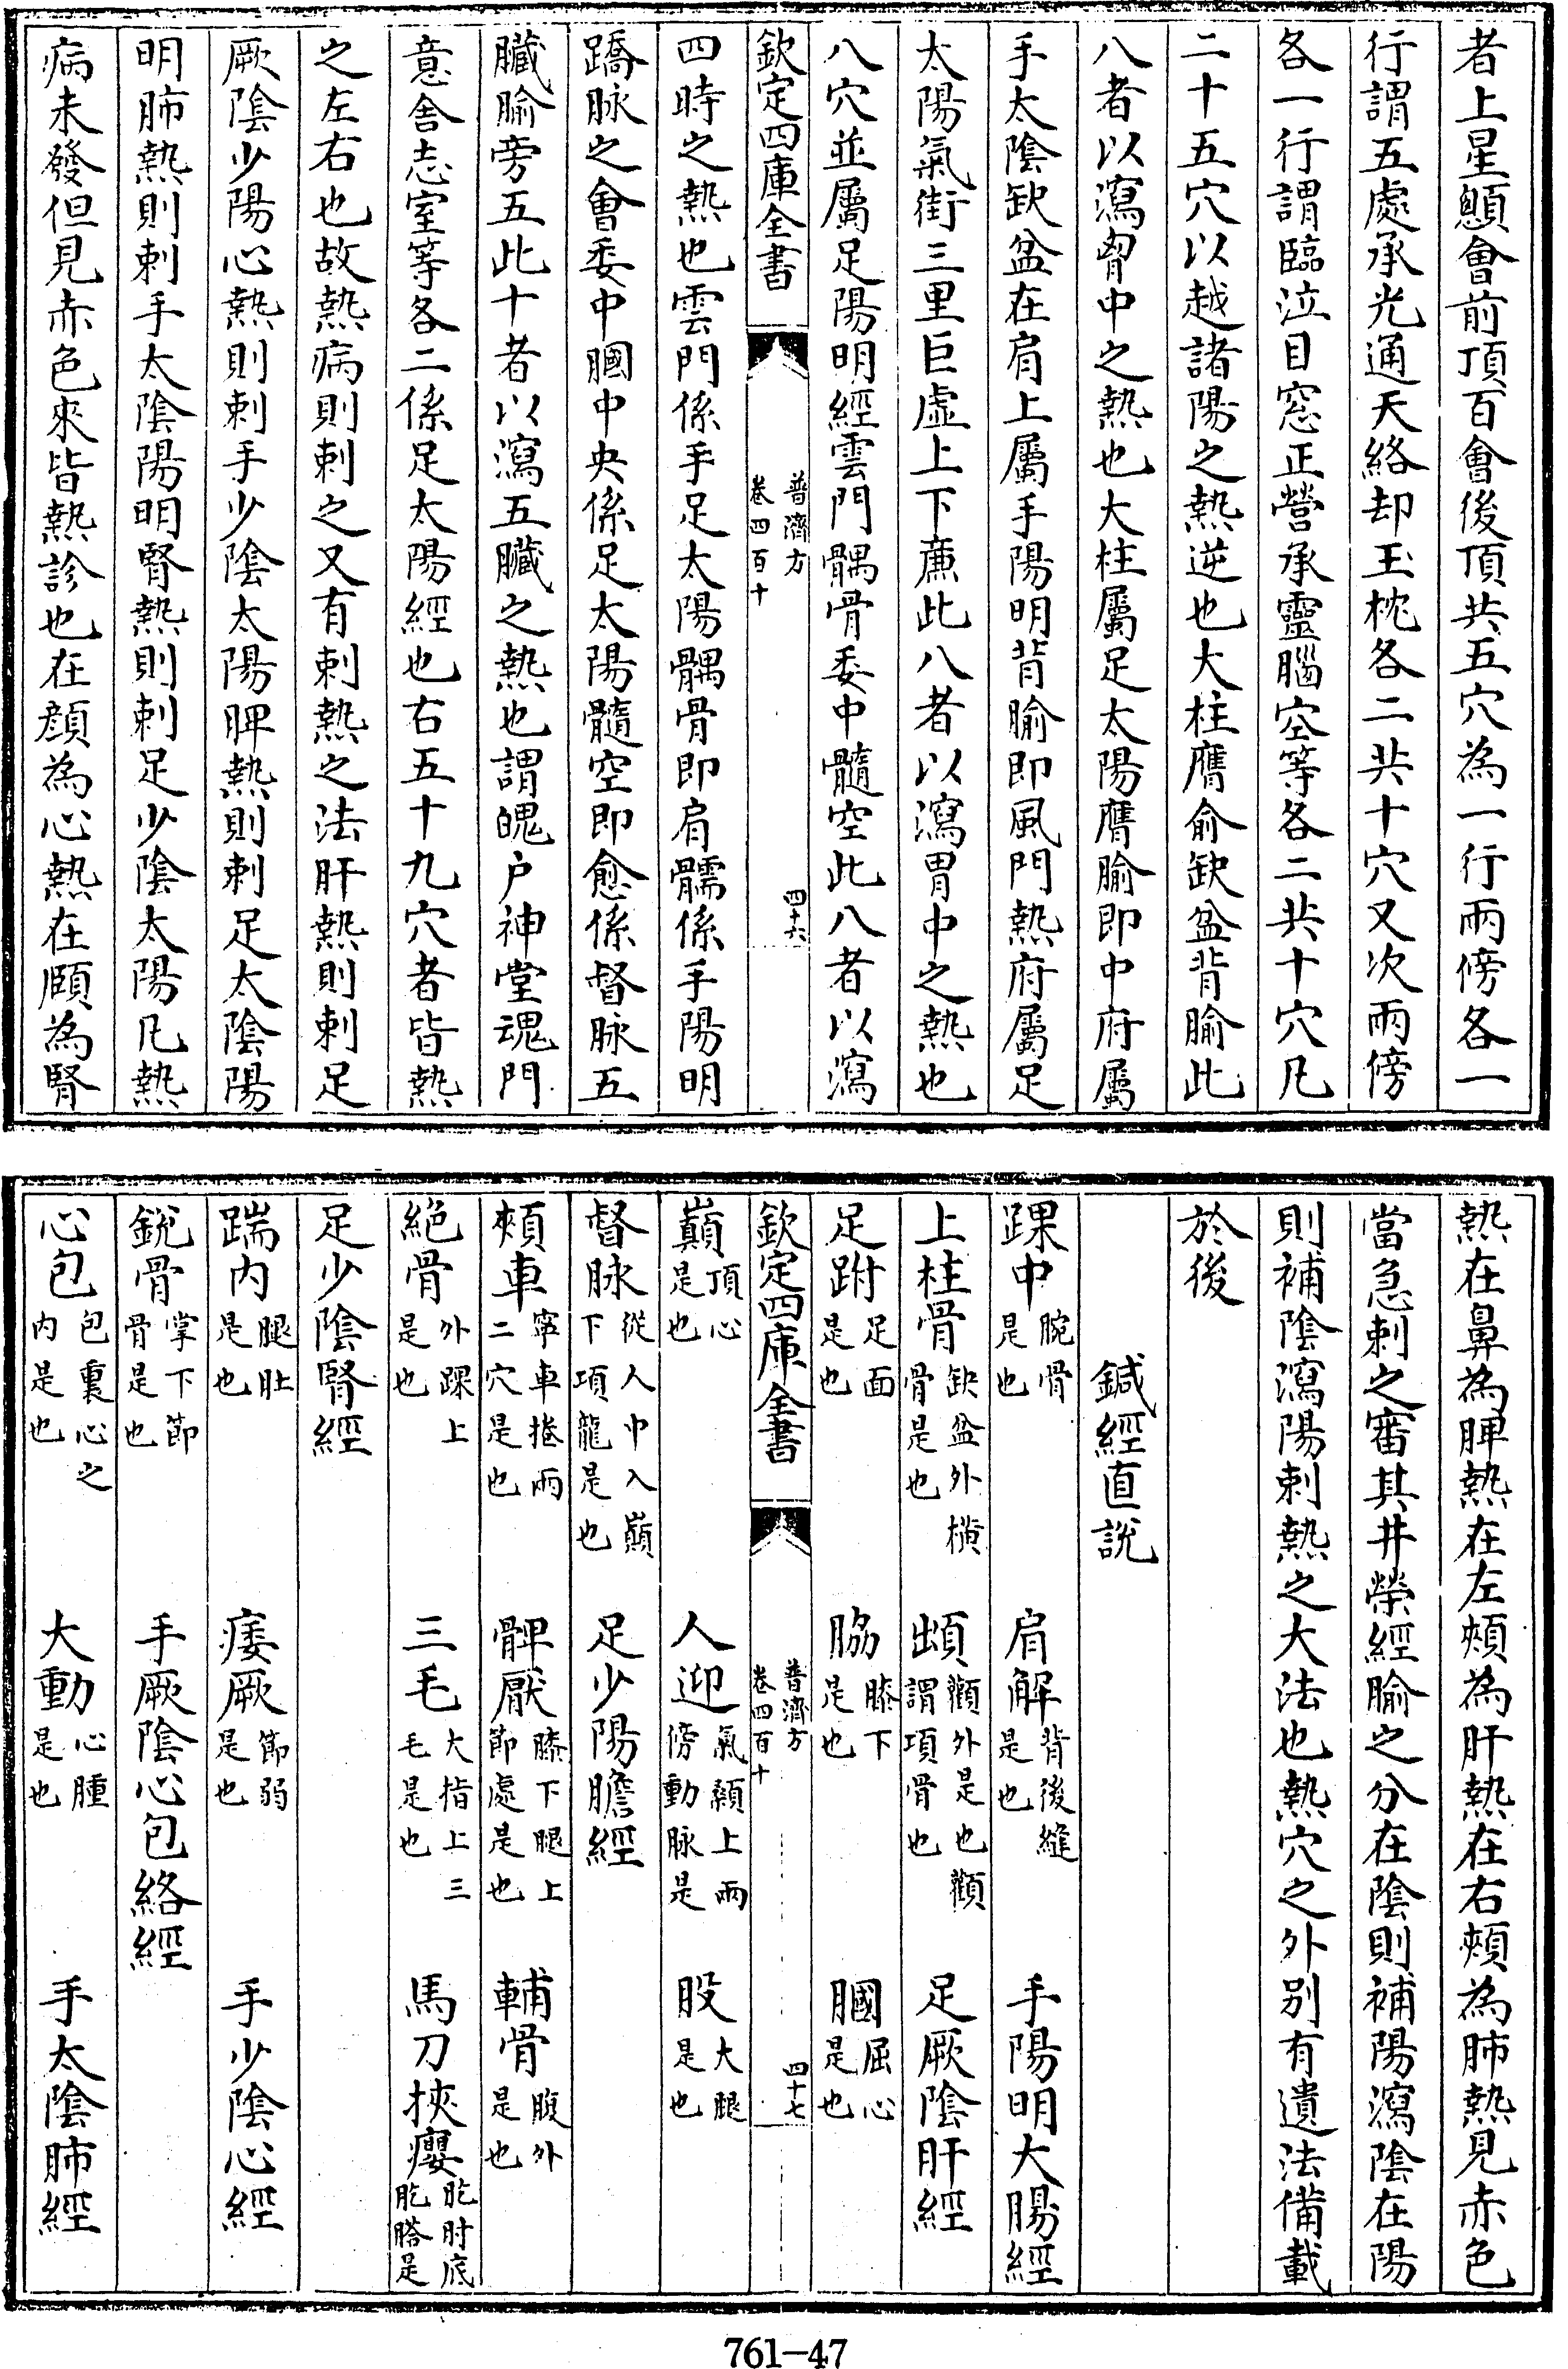 者上星顖會前頂百會後頂共五穴為一行兩傍各一
行謂五處承光通天絡却玉枕各二共十穴又次兩傍
各一行謂臨泣目窓正營承靈腦空等各二共十穴凡
二十五穴以越諸陽之熱逆也大柱膺俞缺盆背腧此
八者以瀉胷中之熱也大柱屬足太陽膺腧即中府屬
手太陰缺盆在肩上屬手陽明背腧即風門熱府屬足
太陽氣街三里巨虛上下廉此八者以瀉胃中之熱也
八穴並屬足陽明經雲門髃骨委中髓空此八者以瀉
欽定四庫全書
普濟方
卷四百十
四十六
四時之熱也雲門係手足太陽髃骨即肩髃係手陽明
蹻脉之會委中膕中央係足太陽髓空即愈係督脉五
臟腧旁五此十者以瀉五臟之熱也謂魄户神堂魂門
意舍志室等各二係足太陽經也右五十九穴者皆熱
之左右也故熱病則刺之又有刺熱之法肝熱則刺足
厥陰少陽心熱則刺手少陰太陽脾熱則刺足太陰陽
明肺熱則刺手太陰陽明腎熱則刺足少陰太陽凡熱
病未發但見赤色來皆熱診也在顔為心熱在頤為腎
熱在鼻為脾熱在左頰為肝熱在右頰為肺熱見赤色
當急刺之審其井滎經腧之分在陰則補陽瀉陰在陽
則補陰瀉陽刺熱之大法也熱穴之外别有遺法備載
於後
鍼經直說
踝中腕骨是也 肩解背後縫是也 手陽明大腸經
上柱骨缺盆外橫骨是也 䪼顴外是也顴謂項骨也 足厥陰肝經
足跗足面是也 脇膝下是也 膕屈心是也
欽定四庫全書
普濟方
卷四百十
四十七
巔頂心是也 人迎氣顙上兩傍動脉是 股大腿是也
督脉從人中入巔下項龍是也 足少陽膽經
頰車寧車捲兩二穴是也 髀厭膝下腿上節處是也 輔骨腹外是也
絶骨外踝上是也 三毛大指上三毛是也 馬刀挾癭肐肘底肐膪足
足少陰腎經
踹内腿肚是也 痿厥節弱是也 手少陰心經
銳骨掌下節骨是也 手厥陰心包絡經
心包包裏心之内是也 大動心腫是也 手太陰肺經
761-47